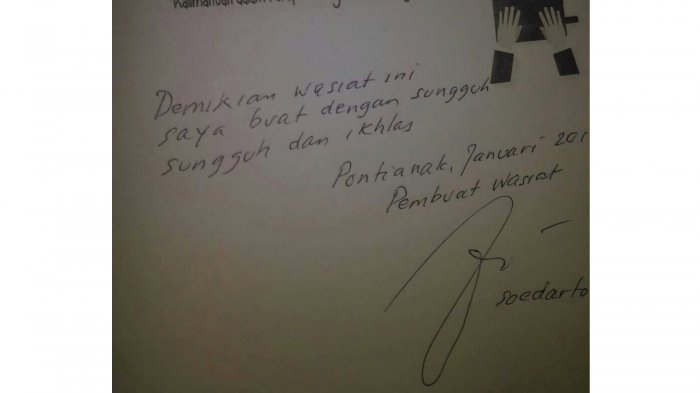 Demikian wasiat ini
saya buat dengan sungguh
sungguh dan ikhlas
Pontianak, Januari 201
Pembuat wasiat
Soedarto